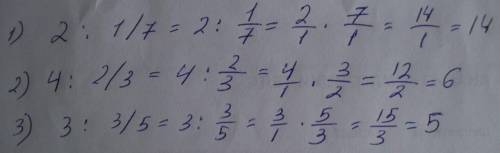 1) 2 : 1/7 = 2 : 1/7 = 2/1 · 7/1 = 14/1 = 14
2) 4 : 2/3 = 4 : 2/3 = 4/1 · 3/2 = 12/2 = 6
3) 3 : 3/5 = 3 : 3/5 = 3/1 · 5/3 = 15/3 = 5